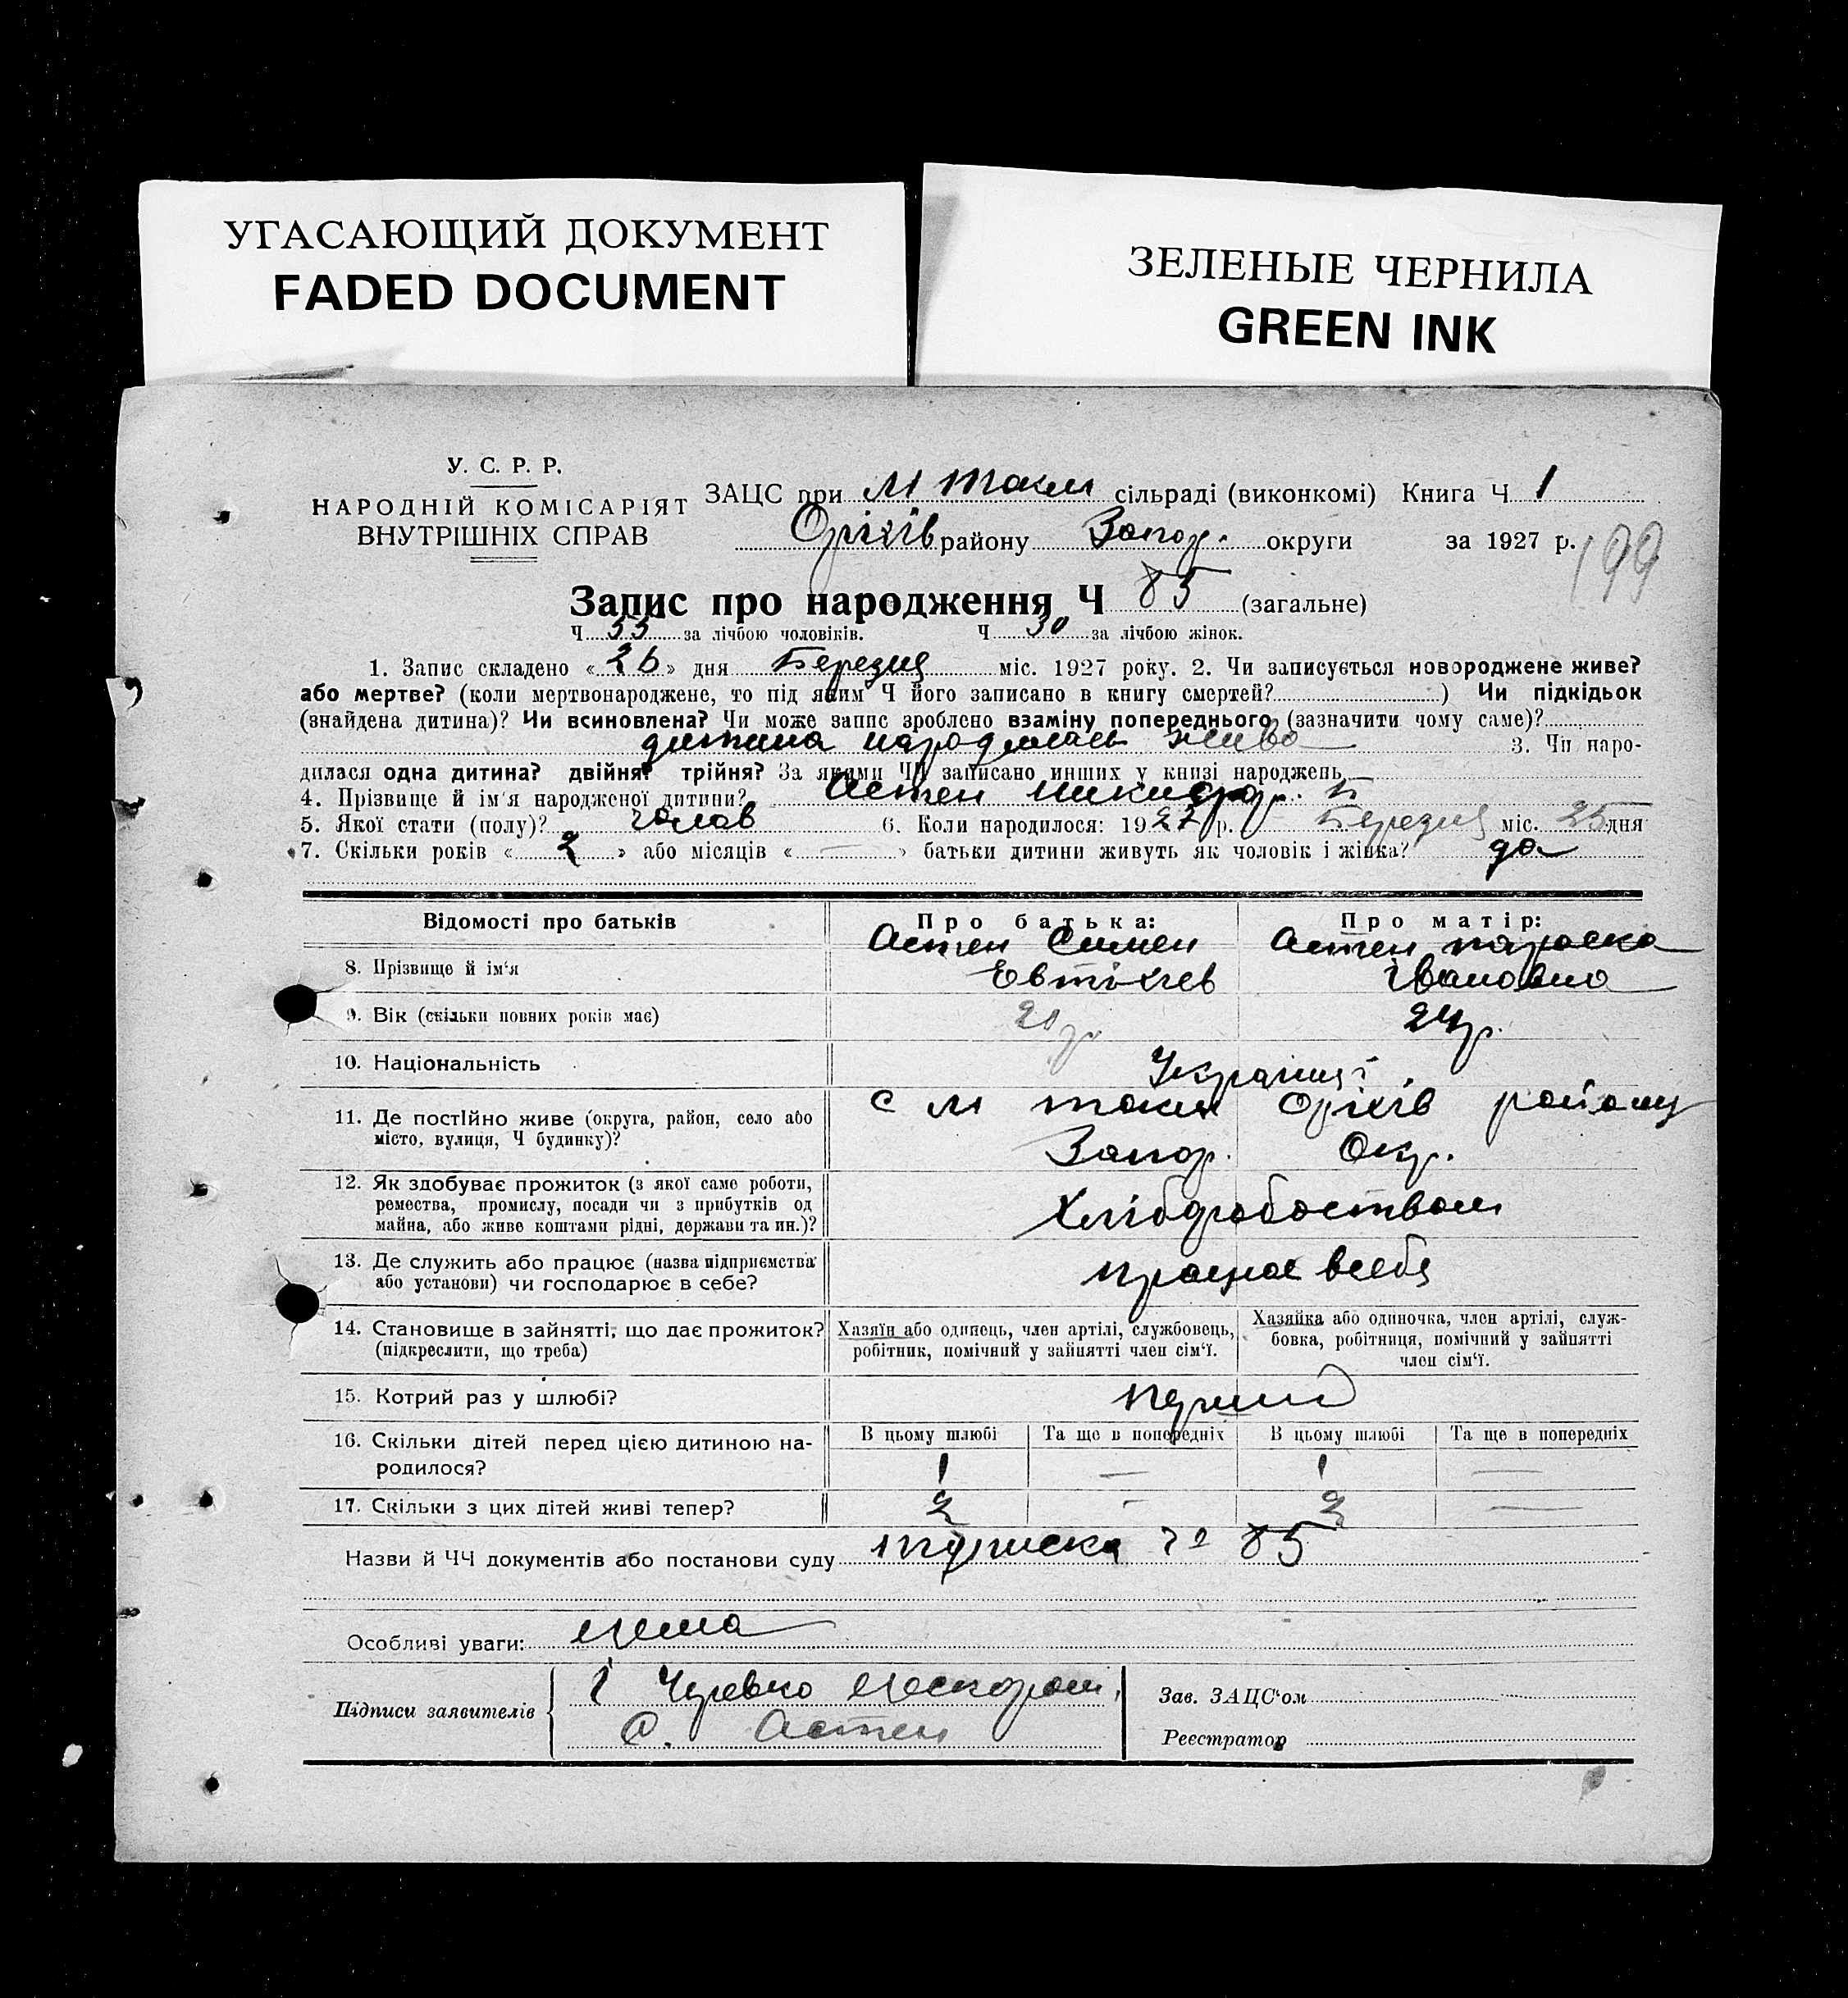 УГАСАЮЩИЙ ДОКУМЕНТ
FADED DOCUMENT
ЗЕЛЕНЫЕ ЧЕРНИЛА
GREEN INK
У. С. Р. Р.
НАРОДНІЙ КОМІСАРІЯТ
ВНУТРІШНІХ СПРАВ
ЗАЦС при М Токм сільраді (виконкомі) Книга Ч 1
Оріхів району Запор. округи за 1927 р.
199
Запис про народження Ч 85 (загальне)
Ч 55 за лічбою чоловіків. Ч 30 за лічбою жінок.
1. Запис складено « 26 » дня Березня міс. 1927 року. 2. Чи записується новороджене живе?
або мертве? (коли мертвонароджене, то під яким Ч його записано в книгу смертей? ) Чи підкідьок
(знайдена дитина)? Чи всиновлена? Чи може запис зроблено взаміну попереднього (зазначити чому саме)?
дитина народилась жива 3. Чи наро-
дилася одна дитина? двійня? трійня? За якими ЧЧ записано инших у книзі народжень
4. Прізвище й ім'я народженої дитини? Астен
5. Якої стати (полу)? чолов 6. Коли народилося: 1927 р. Березня міс. 25 дня
7. Скільки років « 2 » або місяців « — » батьки дитини живуть як чоловік і жінка? да
Відомості про батьків Про батька: Про матір:
8. Прізвище й ім'я Астен Симен Астен
Евтіхієв Івановна
9. Вік (скільки повних років має) 24 р.
10. Національність Українці
11. Де постійно живе (округа, район, село або місто, вулиця, Ч будинку)? с М Оріхів району
Запор. Окр.
12. Як здобуває прожиток (з якої саме роботи,
ремества, промислу, посади чи з прибутків од
майна, або живе коштами рідні, держави та ин.)?
Хліборобством
13. Де служить або працює (назва підприємства
або установи) чи господарює в себе?
працює в себе
14. Становище в зайнятті, що дає прожиток?
(підкреслити, що треба)
Хазяїн або одинець, член артілі, службовець,
робітник, помічний у зайнятті член сім'ї.
Хазяйка або одиночка, член артілі, служ-
бовка, робітниця, помічний у зайнятті
член сім'ї.
15. Котрий раз у шлюбі? перший
16. Скільки дітей перед цією дитиною на-
родилося?
В цьому шлюбі Та ще в попередніх В цьому шлюбі Та ще в попередніх
1 — 1 —
17. Скільки з цих дітей живі тепер? 2 - 2 —
Назви й ЧЧ документів або постанови суду 85
Особливі уваги: нема
Підписи заявителів
С. Астен
Зав. ЗАЦС'ом
Реєстратор